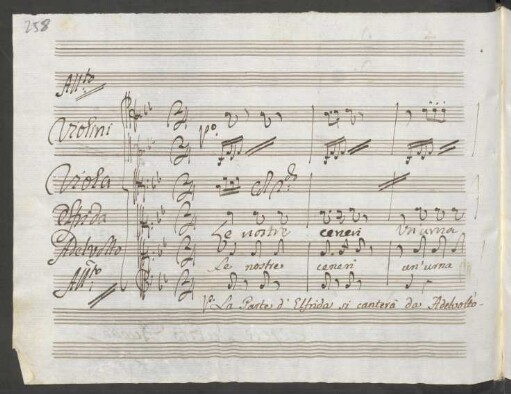 258
All.to
Violini
p.o
Viola
Elfrida
Le nostre ceneri Un'urna
Adelvolto
Le nostre ceneri un'urna
All.to
La Parte d'Elfrida si canterà da Adelvolto